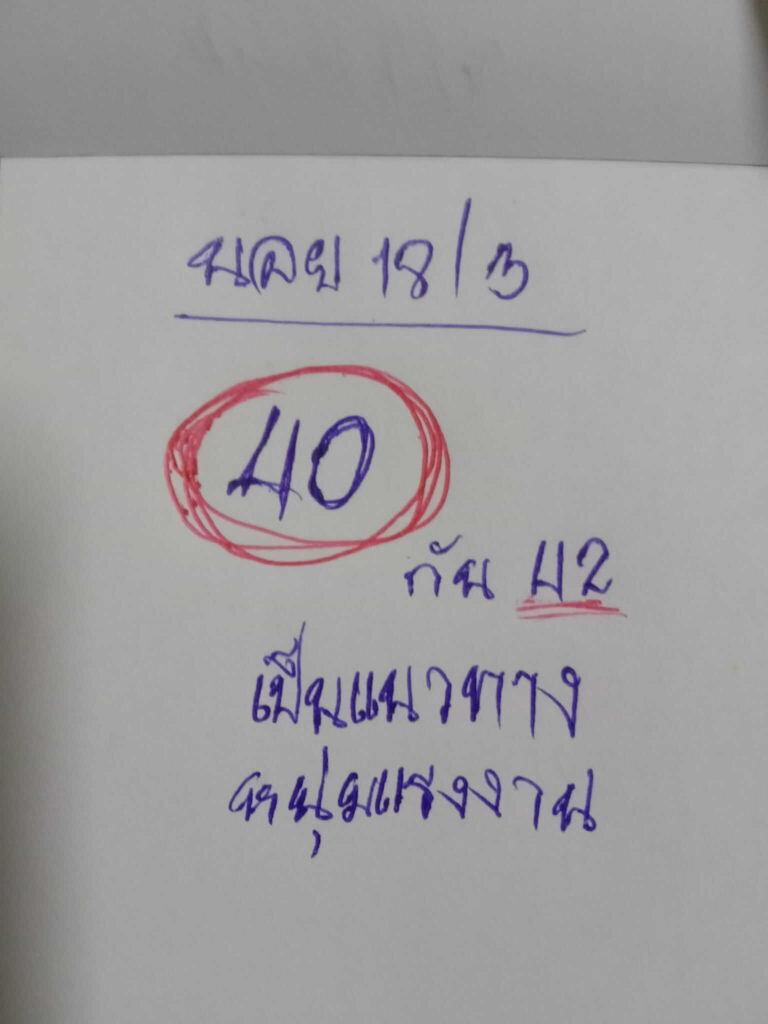 นอย 18/3
40
กัน 42
เป็นแนวทาง
หนุ่มแรงงาน